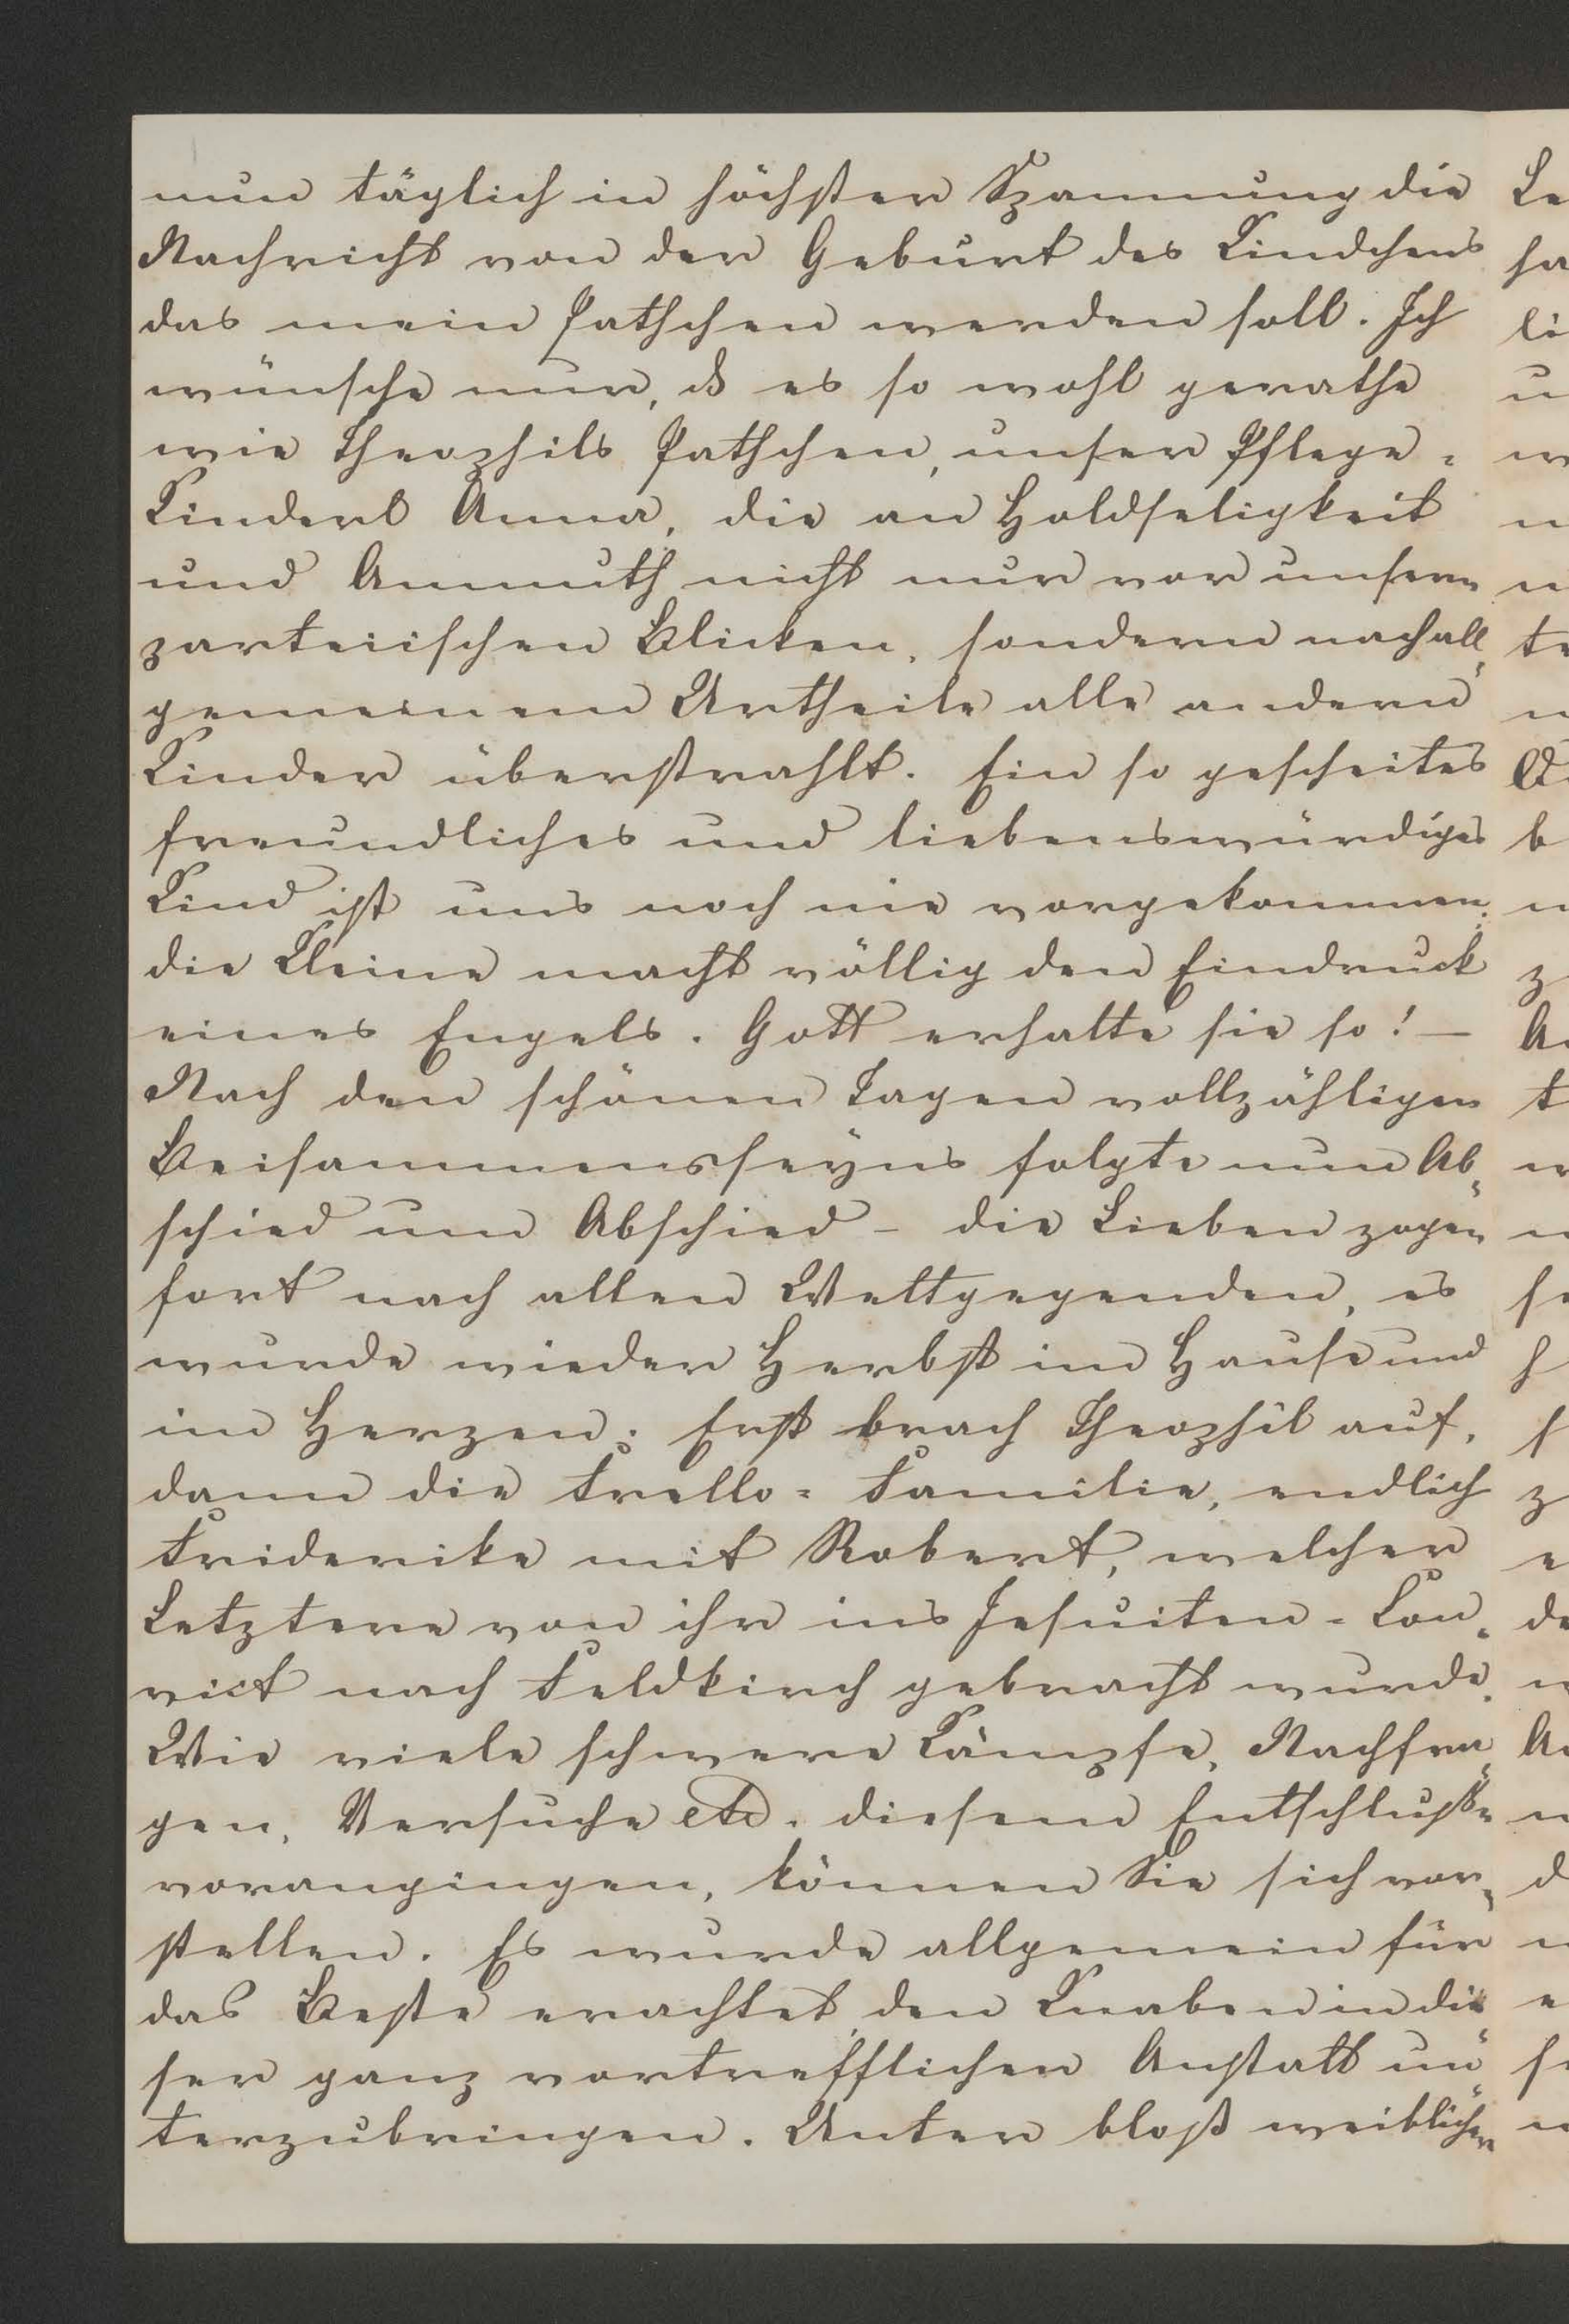 nun täglich in höchster Spannung die
Nachricht von der Geburt des Kindchens
das mein Pathchen werden soll. Ich
wünsche nur, dß es so wohl gerathe
wie Theophils Pathchen, unser Pflege-
Kinderl Anna, die an Holdseligkeit
und Anmuth nicht nur vor unsern
parteiischen Blicken, sondern nach all-
gemeinem Urtheile alle andern
Kinder überstrahlt. Ein so gescheites
freundliches und liebenswürdiges
Kind ist uns noch nie vorgekommen.
die Kleine macht völlig den Eindruck
eines Engels. Gott erhalte sie so! —
Nach den schönen Tagen vollzähligen
Beisammensseyns folgte nun Ab-
schied um Abschied – die Lieben zogen
fort nach allen Weltgegenden, es
wurde wieder Herbst im Hause und
im Herzen: Erst brach Theophil auf,
dann die Trello-Familie, endlich
Friderike mit Robert, welcher
Letztere von ihr ins Jesuiten-Con-
vict nach Feldkirch gebracht wurde.
Wie viele schwere Kämpfe, Nachfra-
gen, Versuche etc. diesem Entschluße
vorangingen, können Sie sich vor-
stellen. Es wurde allgemein für
das Beste erachtet, den Knaben in die-
ser ganz vortrefflichen Anstalt un-
terzubringen. Unter bloß weiblichen